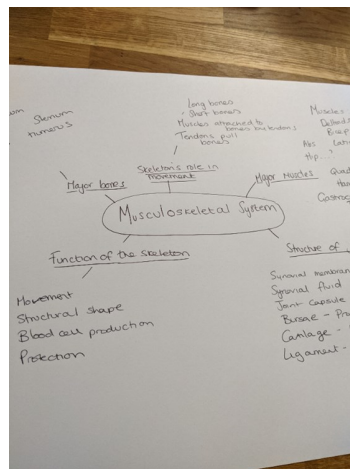 Sternum
Humerus
Long bones
Short bones
Muscles attached to
bones by tendons
Tendons pull
bones
Muscles
Deltoid
Bicep
Abs
Hip
Skeleton's role in
movement
Major bones
Major Muscles
Quad
Ham
Gastroc
Musculoskeletal System
Function of the skeleton
Structure of
Movement
Structural shape
Blood cell production
Protection
Synovial membran
Synovial fluid
Joint capsule
Bursae - Pr
Cartilage -
Ligament -